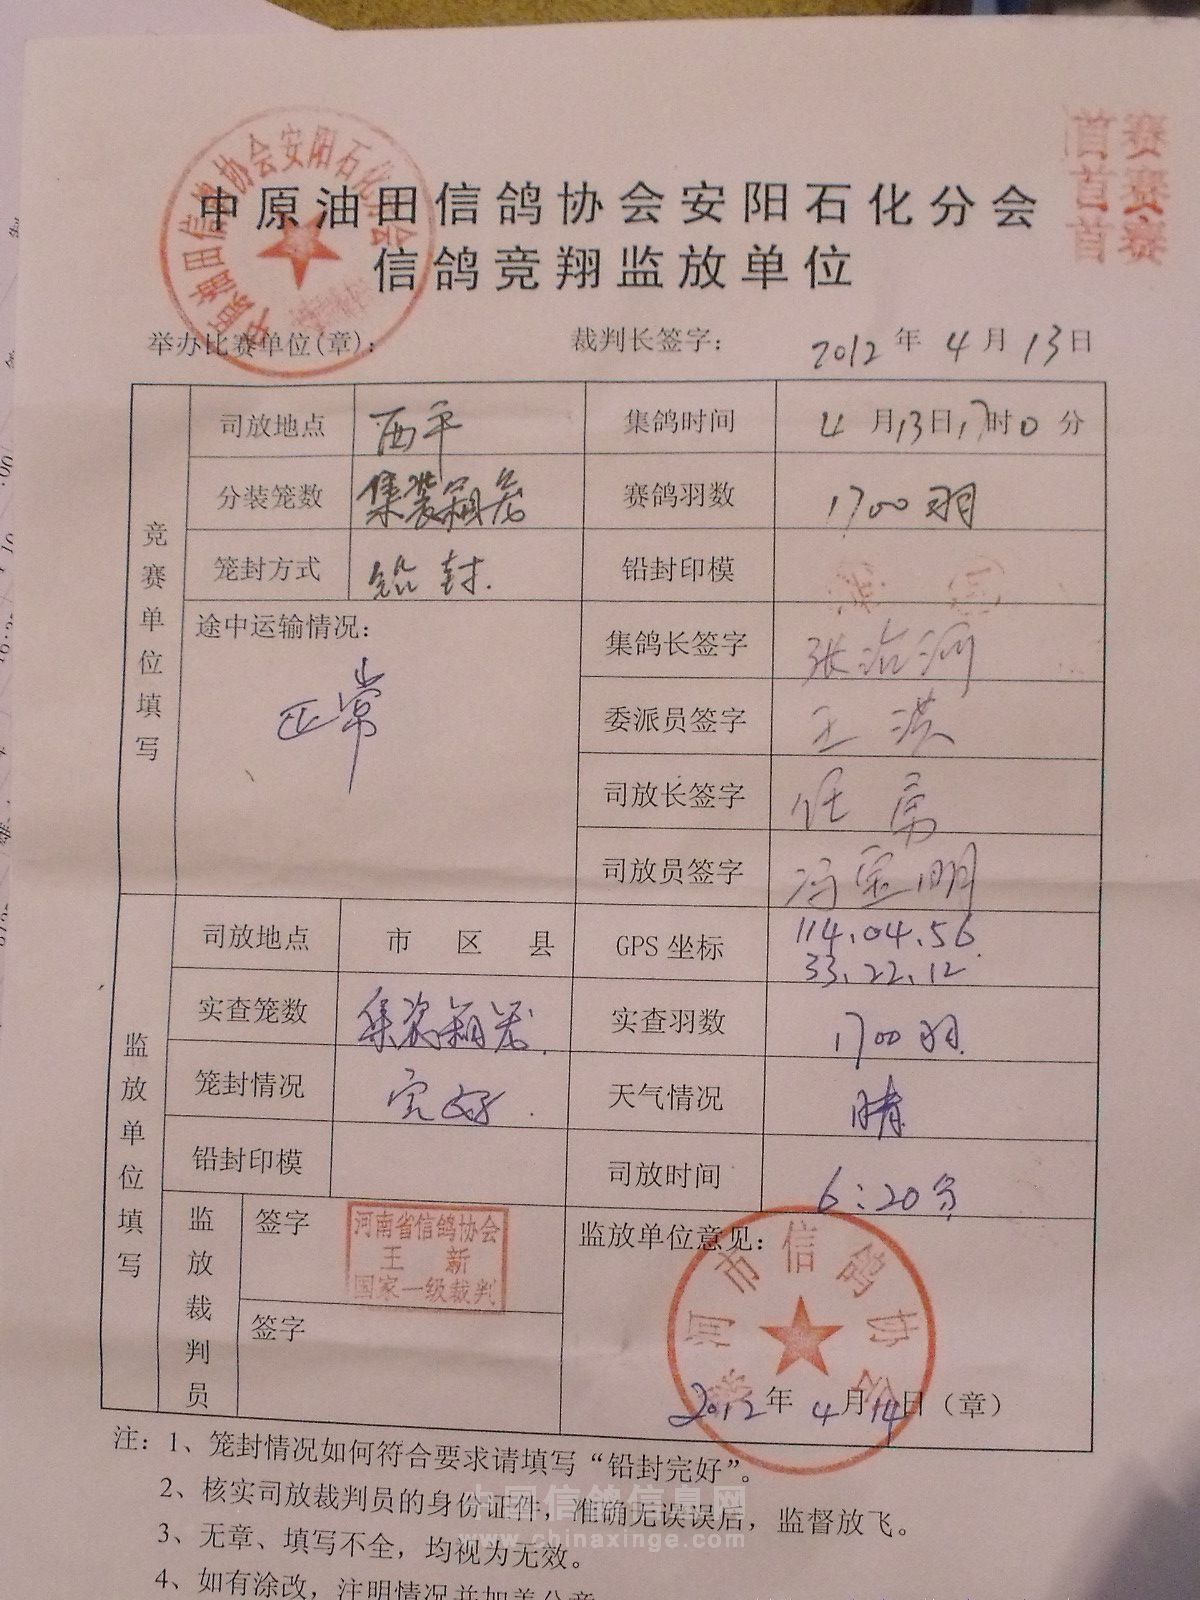 首赛
首赛
首赛
中原油田信鸽协会安阳石化分会
信鸽竞翔监放单位
举办比赛单位(章): 裁判长签字: 2012年4月13日
竞赛单位填写
司放地点 西平 集鸽时间 4月13日17时0分
分装笼数 集装箱笼 赛鸽羽数 1700羽
笼封方式 铅封. 铅封印模
途中运输情况: 正常
集鸽长签字 张治河
委派员签字 王洪
司放长签字 任勇
司放员签字 冯金明
监放单位填写
司放地点 市 区 县 GPS坐标 114.04.56
33.22.12
实查笼数 集装箱笼. 实查羽数 1700羽.
笼封情况 完好. 天气情况 晴
铅封印模 司放时间 6:20分
监放裁判员
签字 河南省信鸽协会
王 新
国家一级裁判
签字
监放单位意见:
漯河市信鸽协会
2012年4月14日(章)
注:1、笼封情况如何符合要求请填写“铅封完好”。
2、核实司放裁判员的身份证件,准确无误误后,监督放飞。
3、无章、填写不全,均视为无效。
4、如有涂改,注明情况并加盖公章
中国信鸽信息网
www.chinaxinge.com